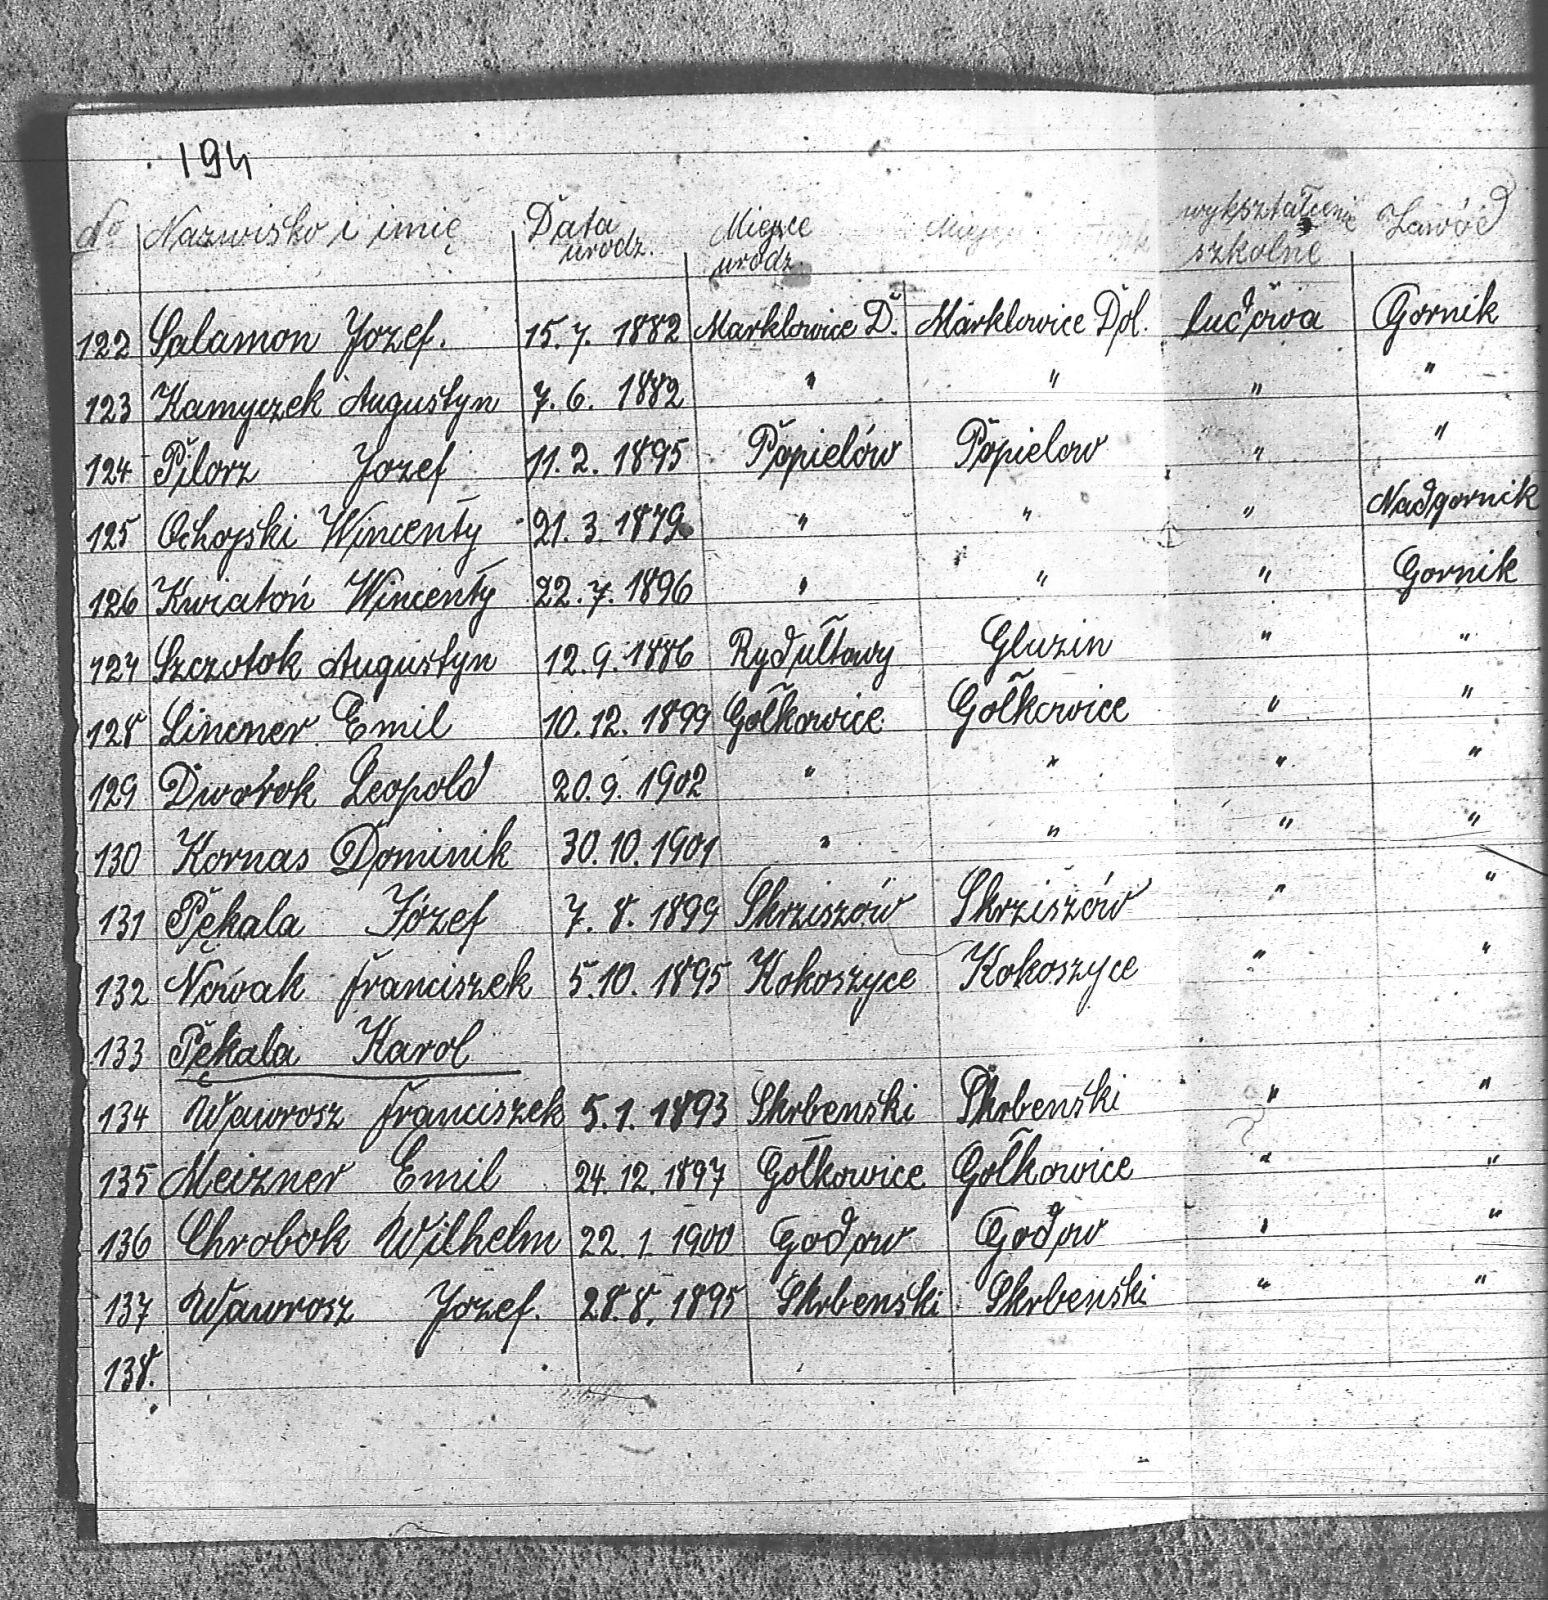 194
No Nazwisko i imię Data urodz. Miejsce urodz. wykształcenie szkolne Zawód
122 Salamon Jozef. 15.7. 1882 Marklowice D. Marklowice Dol. ludowa Gornik
123 Kamyczek Augustyn 7.6. 1882 " " " "
124 Pilorz Jozef 11.2. 1895 Popielów Popielow " "
125 Ochojski Wincenty 21.3.1879 " " " Nadgornik
126 Kwiatoń Wincenty 22.7.1896 " " " Gornik
127 Szczotok Augustyn 12.9.1886 Rydułtowy Gluzin " "
128 Lincner Emil 10.12.1899 Gołkowice Gołkowice " "
129 Dworok Leopold 20.9.1902 " " " "
130 Kornas Dominik 30.10.1901 " " " "
131 Pękala Józef 7.8.1899 Skrziszów Skrziszów " "
132 Nowak Franciszek 5.10.1895 Kokoszyce Kokoszyce " "
133 Pękala Karol
134 Wawrosz Franciszek 5.1.1893 Skrbenski Skrbenski " "
135 Meizner Emil 24.12.1897 Gołkowice Gołkowice " "
136 Chrobok Wilhelm 22.1.1900 Godow Godow " "
137 Wawrosz Jozef. 28.8.1895 Skrbenski Skrbenski " "
138.